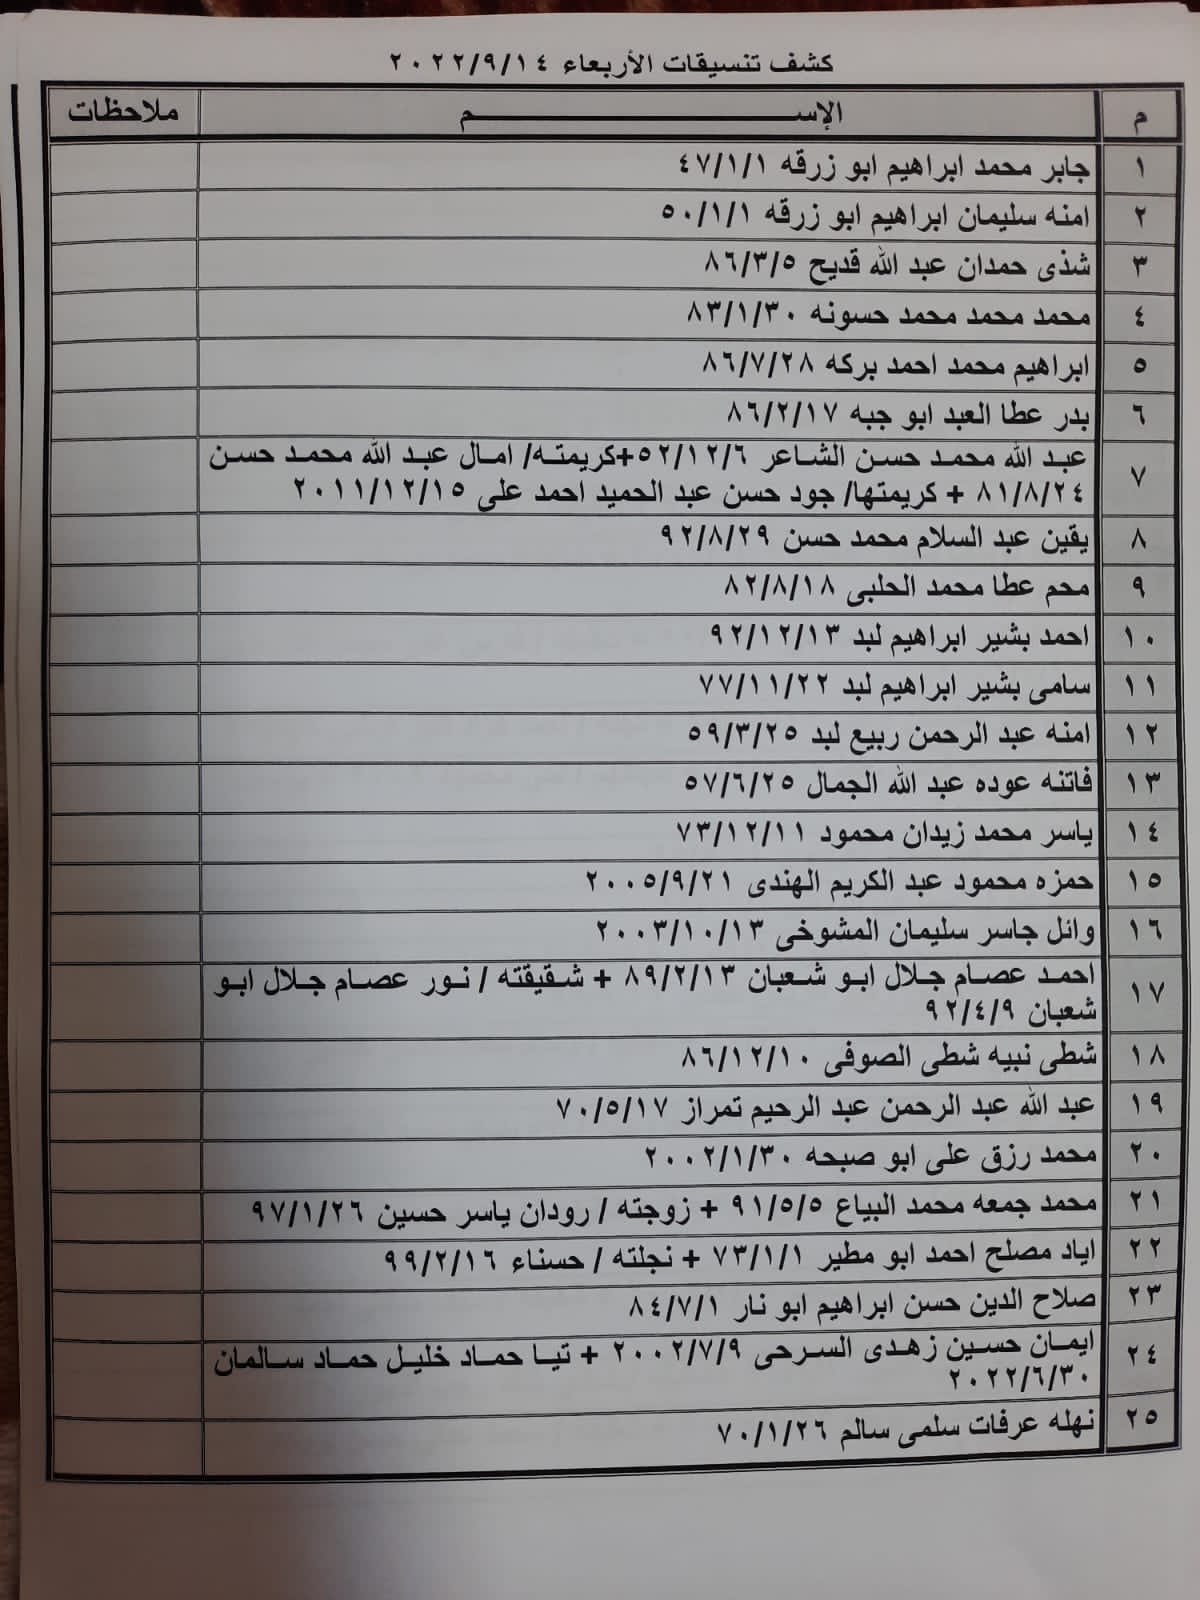 كشف تنسيقات الأربعاء ٢٠٢٢/٩/١٤
م الإســـــــــــــم ملاحظات
١ جابر محمد ابراهيم ابو زرقه ٤٧/١/١
٢ امنه سليمان ابراهيم ابو زرقه ٥٠/١/١
٣ شذى حمدان عبد الله قديح ٨٦/٣/٥
٤ محمد محمد محمد حسونه ٨٣/١/٣٠
٥ ابراهيم محمد احمد بركه ٨٦/٧/٢٨
٦ بدر عطا العبد ابو جبه ٨٦/٢/١٧
٧ عبد الله محمد حسن الشاعر ٥٢/١٢/٦+كريمته/ امال عبد الله محمد حسن
٨١/٨/٢٤ + كريمتها/ جود حسن عبد الحميد احمد على ٢٠١١/١٢/١٥
٨ يقين عبد السلام محمد حسن ٩٢/٨/٢٩
٩ محم عطا محمد الحلبى ٨٢/٨/١٨
١٠ احمد بشير ابراهيم لبد ٩٢/١٢/١٣
١١ سامى بشير ابراهيم لبد ٧٧/١١/٢٢
١٢ امنه عبد الرحمن ربيع لبد ٥٩/٣/٢٥
١٣ فاتنه عوده عبد الله الجمال ٥٧/٦/٢٥
١٤ ياسر محمد زيدان محمود ٧٣/١٢/١١
١٥ حمزه محمود عبد الكريم الهندى ٢٠٠٥/٩/٢١
١٦ وائل جاسر سليمان المشوخى ٢٠٠٣/١٠/١٣
١٧ احمد عصام جلال ابو شعبان ٨٩/٢/١٣ + شقيقته / نور عصام جلال ابو
شعبان ٩٢/٤/٩
١٨ شطى نبيه شطى الصوفى ٨٦/١٢/١٠
١٩ عبد الله عبد الرحمن عبد الرحيم تمراز ٧٠/٥/١٧
٢٠ محمد رزق على ابو صبحه ٢٠٠٢/١/٣٠
٢١ محمد جمعه محمد البياع ٩١/٥/٥ + زوجته / رودان ياسر حسين ٩٧/١/٢٦
٢٢ اياد مصلح احمد ابو مطير ٧٣/١/١ + نجلته / حسناء ٩٩/٢/١٦
٢٣ صلاح الدين حسن ابراهيم ابو نار ٨٤/٧/١
٢٤ ايمان حسين زهدى السرحى ٢٠٠٢/٧/٩ + تيا حماد خليل حماد سالمان
٢٠٢٢/٦/٣٠
٢٥ نهله عرفات سلمى سالم ٧٠/١/٢٦